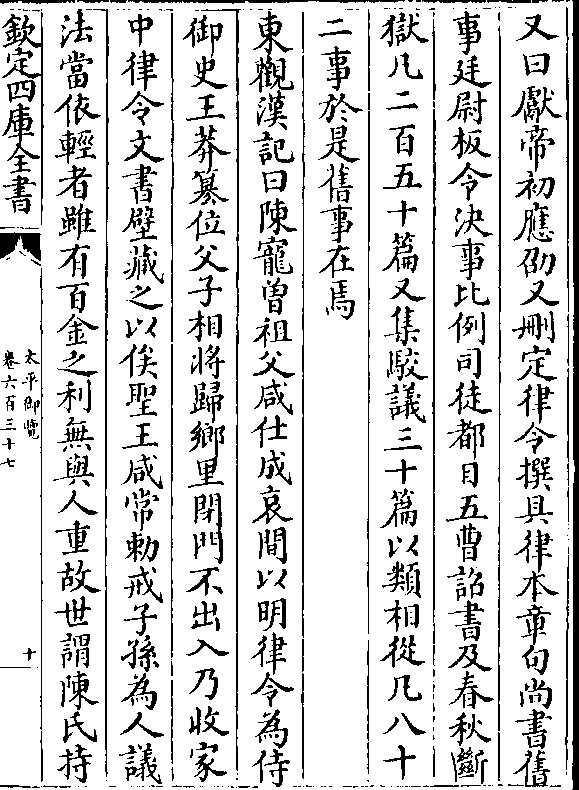 又曰獻帝初應劭又刪定律令撰具律本章句尚書舊
事廷尉板令决事比例司徒都目五曹詔書及春秋斷
獄凡二百五十篇又集駮議三十篇以類相從凡八十
二事於是舊事在焉
東觀漢記曰陳寵曽祖父咸仕成哀間以明律令為侍
御史王莽簒位父子相將歸鄉里閉門不出入乃收家
中律令文書壁藏之以俟聖王咸常勅戒子孫為人議
法當依輕者雖有百金之利無與人重故世謂陳氏持
欽定四庫全書
太平御覽
卷六百三十七
十